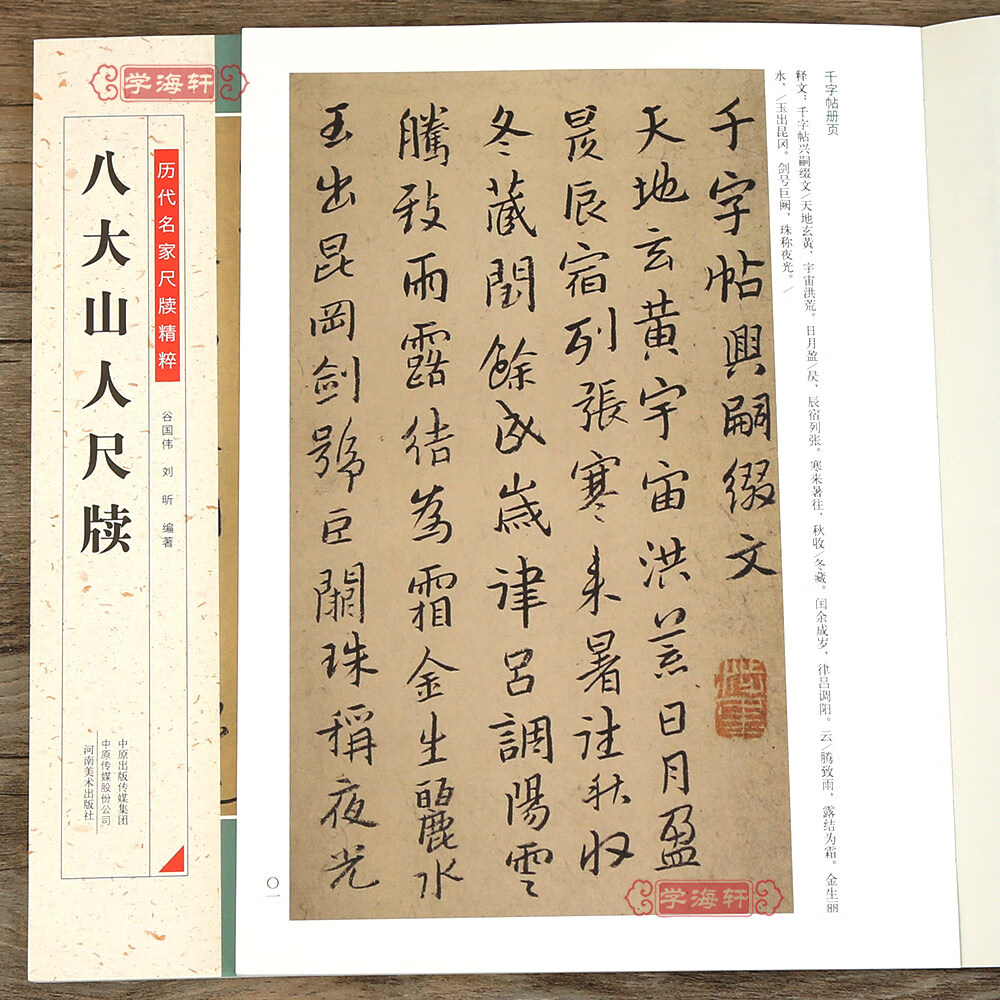 学海轩
历代名家尺牍精粹
八大山人尺牍
谷国伟 刘昕 编著
中原出版传媒集团
中原传媒股份公司
河南美术出版社
千字帖册页
释文：千字帖兴嗣缀文/天地玄黄，宇宙洪荒。日月盈/昃，辰宿列张。寒来暑往，秋收/冬藏。闰余成岁，律吕调阳。云/腾致雨，露结为霜。金生丽
水，/玉出昆冈。剑号巨阙，珠称夜光。/
千字帖興嗣綴文
天地玄黄宇宙洪荒日月盈
昃辰宿列張寒来暑往秋収
冬蔵閏餘成歳律呂調陽雲
騰致雨露结為霜金生麗水
玉出昆岡劍號巨闕珠稱夜光
〇一
学海轩